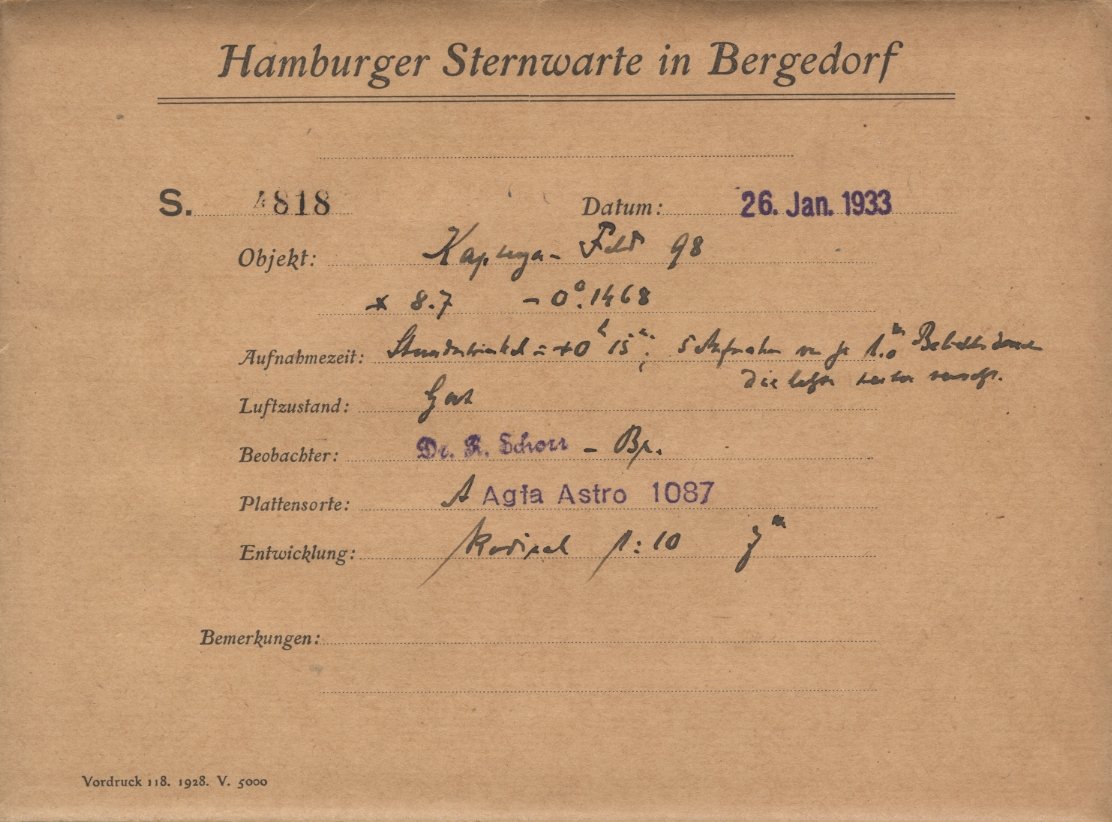 Hamburger Sternwarte in Bergedorf
S. 4818 Datum: 26. Jan. 1933
Objekt: Kapteyn- Feld 98
* 8.7 - 0°.1468
Aufnahmezeit: Stundenwinkel = +0ʰ 15ᵐ; 5 Aufnahmen von je 1.0ᵐ
Die letzte
Luftzustand: Gut
Beobachter: Dr. R. Schorr - Br.
Plattensorte: A Agfa Astro 1087
Entwicklung: Rodinal 1:10 7ᵐ
Bemerkungen:
Vordruck 118. 1928. V. 5000